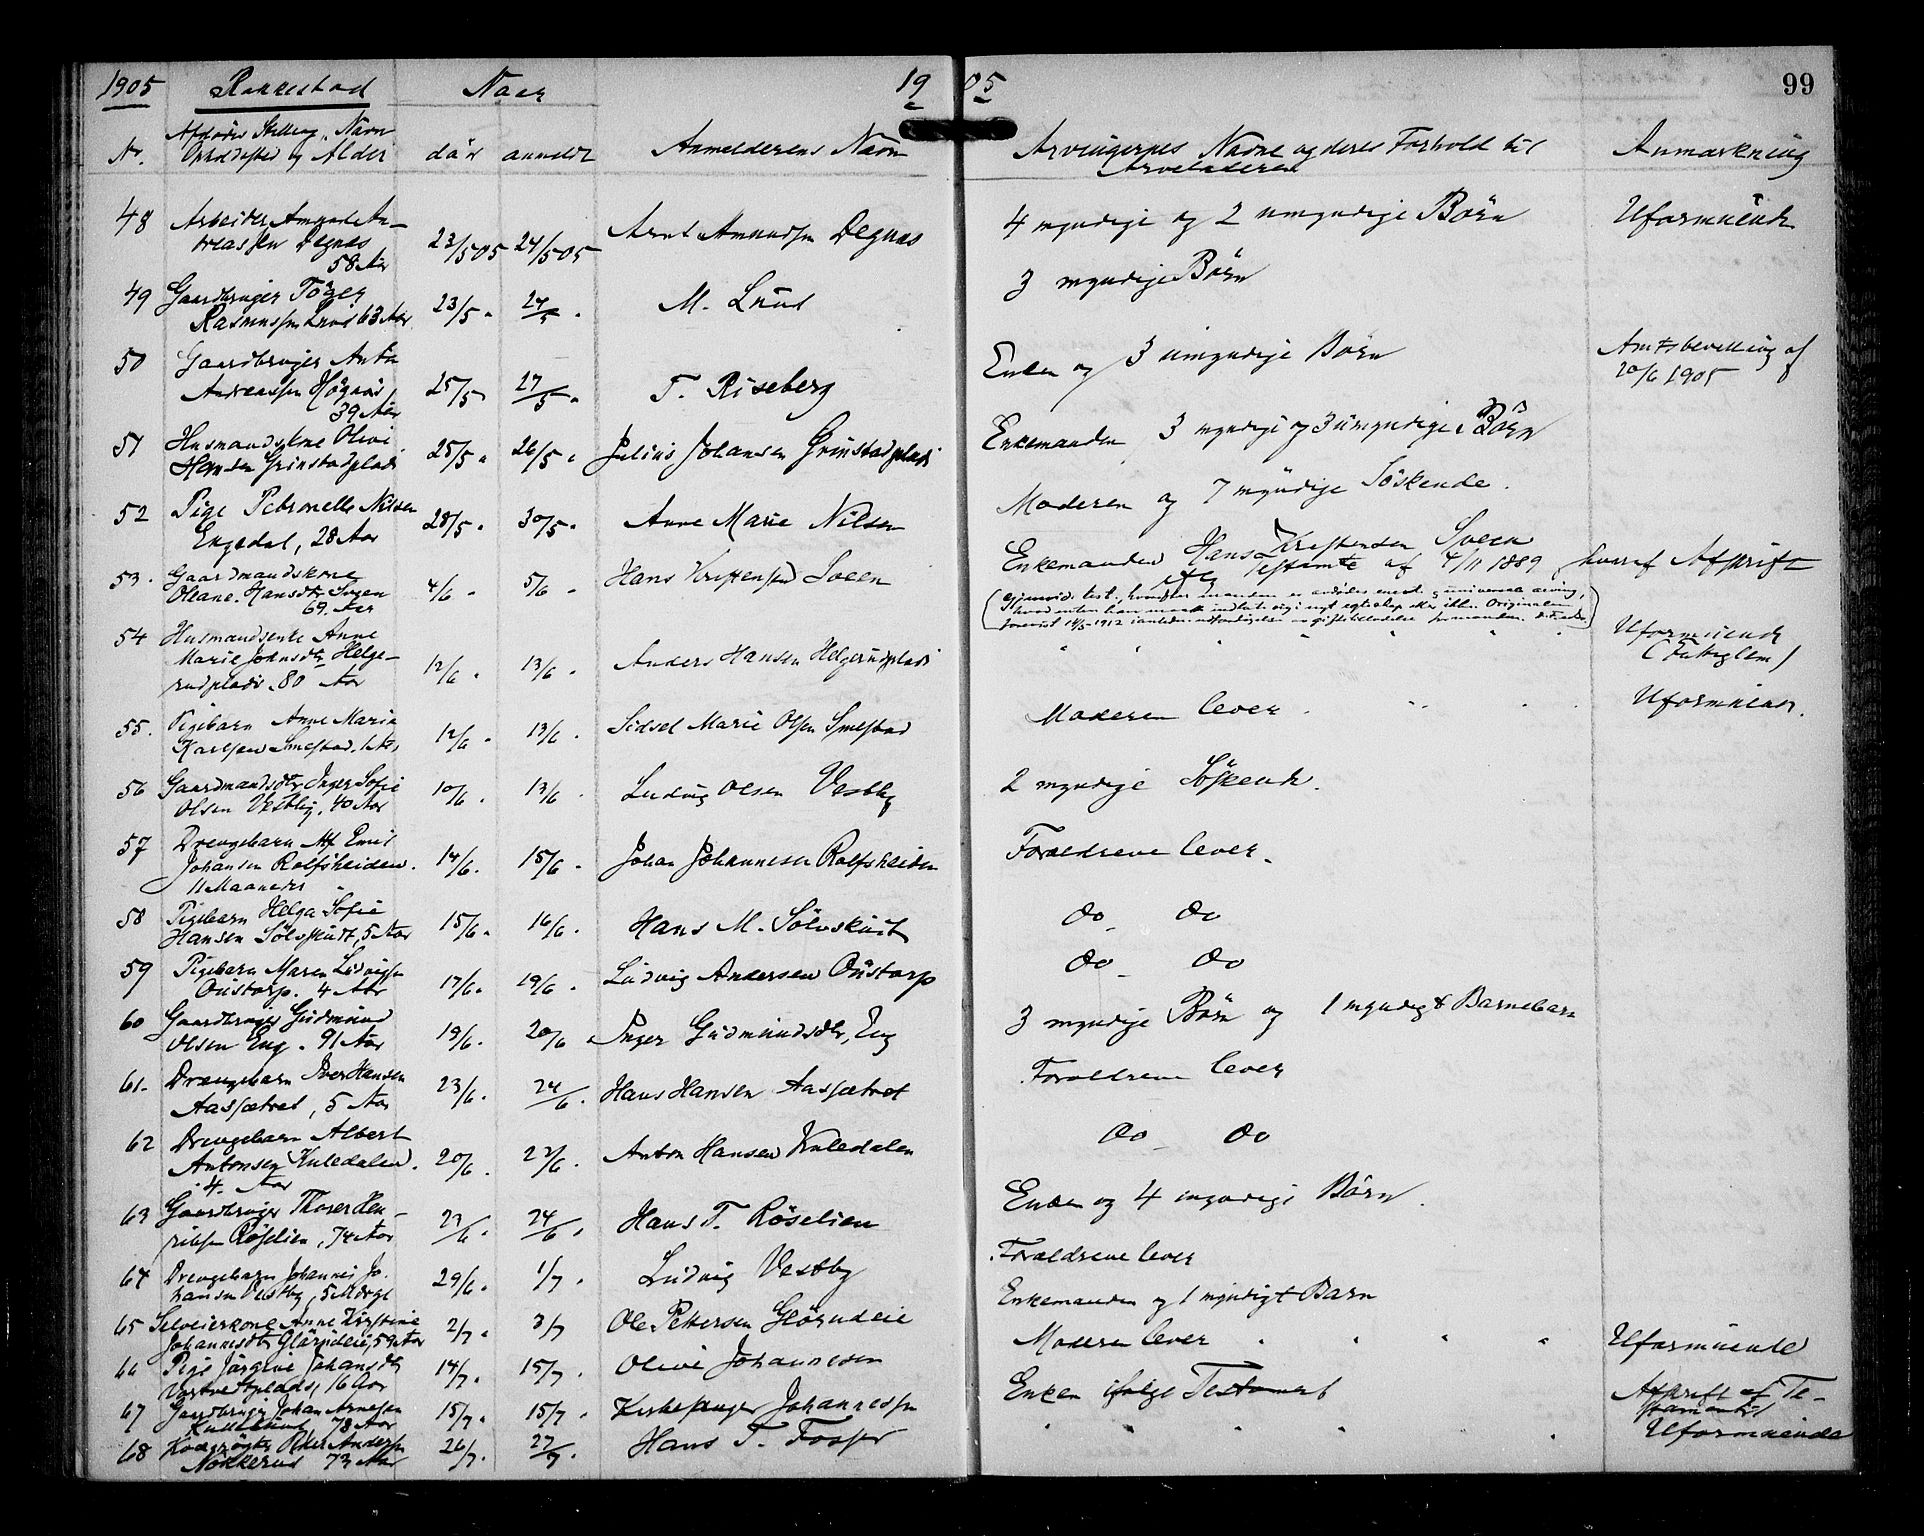 1905 Rakkestad Naar 1905 99
No. Afdødes Stilling, Navn Opholdssted og Alder död anmeldt Anmelderens Navn Arvingernes Navne og deres Forhold til Arveladeren Anmærkning
48 Arbeider Amund An-
dreassen Degnes
58 Aar 23/5 05 24/5 05 Arnt Amundsen Degnes 4 myndige og 2 umyndige Börn Uformuende
49 Gaardbruger Töger
Rasmussen Lund 63 Aar 23/5 " 24/5 " M. Lund 3 myndige Börn
50 Gaardbruger Anton
Andreassen Högnäs
39 Aar 25/5 27/5 " T. Riseberg Enken og 3 umyndige Börn Amtsbevilling af
20/6 1905
51 Husmandskone Olive
Hansen Grinstadplads 25/5 " 26/5 " Julius Johansen Grinstadplads Enkemanden 3 myndige og 3 umyndige Börn
52 Pige Petronelle Nilsen
Engedal, 28 Aar 28/5 " 30/5 " Anne Marie Nilsen Moderen og 7 myndige Söskende.
53. Gaardmandskone
Oleane Hansdtr Sveen
69 Aar 4/6 " 5/6 " Hans Kristensen Sveen Enkemanden Hans Kristensen Sveen
iflg Testamte af 4/11 1889 hvoraf Afskrift
54 Husmandsenke Anne
Marie Johnsdtr Helge-
rudplads. 80 Aar 12/6 " 13/6 " Anders Hansen Helgerudplads " " " " " Uformuende
(Fattiglem)
55. Pigebarn Anne Marie
Karlsen Smestad. 1 Aar 12/6 " 13/6 " Sidsel Marie Olsen Smestad Moderen lever " " " Uformuende.
56 Gaardmandsdtr Inger Sofie
Olsen Vestby, 40 Aar 10/6 " 13/6 " Ludvig Olsen Vestby 2 myndige Söskende.
57 Drengebarn Alf Emil
Johansen Rolfsheiden.
11 Maaneder 14/6 " 15/6 " Johan Johannesen Rolfsheiden Forældrene lever.
58 Pigebarn Helga Sofie
Hansen Sölvskudt, 5 Aar 15/6 " 16/6 " Hans M. Sölvskudt Do Do
59 Pigebarn Maren Ludvigsen
Oustorp. 4 Aar 17/6 " 19/6 " Ludvig Andersen Oustorp Do Do
60 Gaardbruger Gudmund
Olsen Eng. 91 Aar 19/6 " 20/6 " Inger Gudmundsdtr, Eng 3 myndige Börn og 1 myndigt Barnebarn
61. Drengebarn Iver Hansen
Aassætret, 5 Aar 23/6 " 24/6 " Hans Hansen Aassætret Forældrene lever
62 Drengebarn Albert
Antonsen Kuledalen.
4 Aar 20/6 " 23/6 " Anton Hansen Kuledalen Do Do
63 Gaardbruger Thorer Hen-
riksen Röselien, 74 Aar 23/6 " 24/6 " Hans T. Röselien Enken og 4 myndige Börn.
64 Drengebarn Johannes Jo-
hansen Vestby, 29/6 " 1/7 " Ludvig Vestby Forældrene lever
65 Selveierkone Anne Kirstine
Johannesdtr 59 Aar 2/7 " 3/7 Ole Pettersen Enkemanden og 1 myndigt Barn
66 Pige Jörgine Johansdtr
16 Aar 14/7 " 15/7 " Olive Johannesen Moderen lever " " " " Uformuende
67 Gaardbruger Johan Arnesen
78 Aar 15/7 " 15/7 " Kirkesanger Johannessen Enken ifølge Testament Afskrift af Te-
stamentet
68 Peder Andersen
Nokkerud 73 Aar 26/7 " 27/7 " Hans T. Fosser " " " " Uformuende